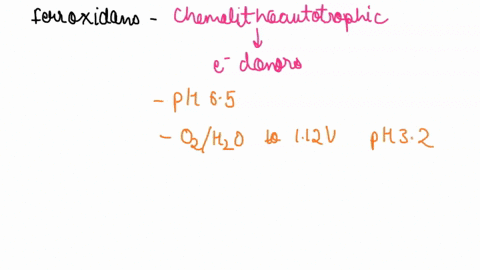 ferroxidans - Chemolithoautotrophic
↓
e⁻ donors
- pH 6.5
- O₂/H₂O to 1.12V pH 3.2